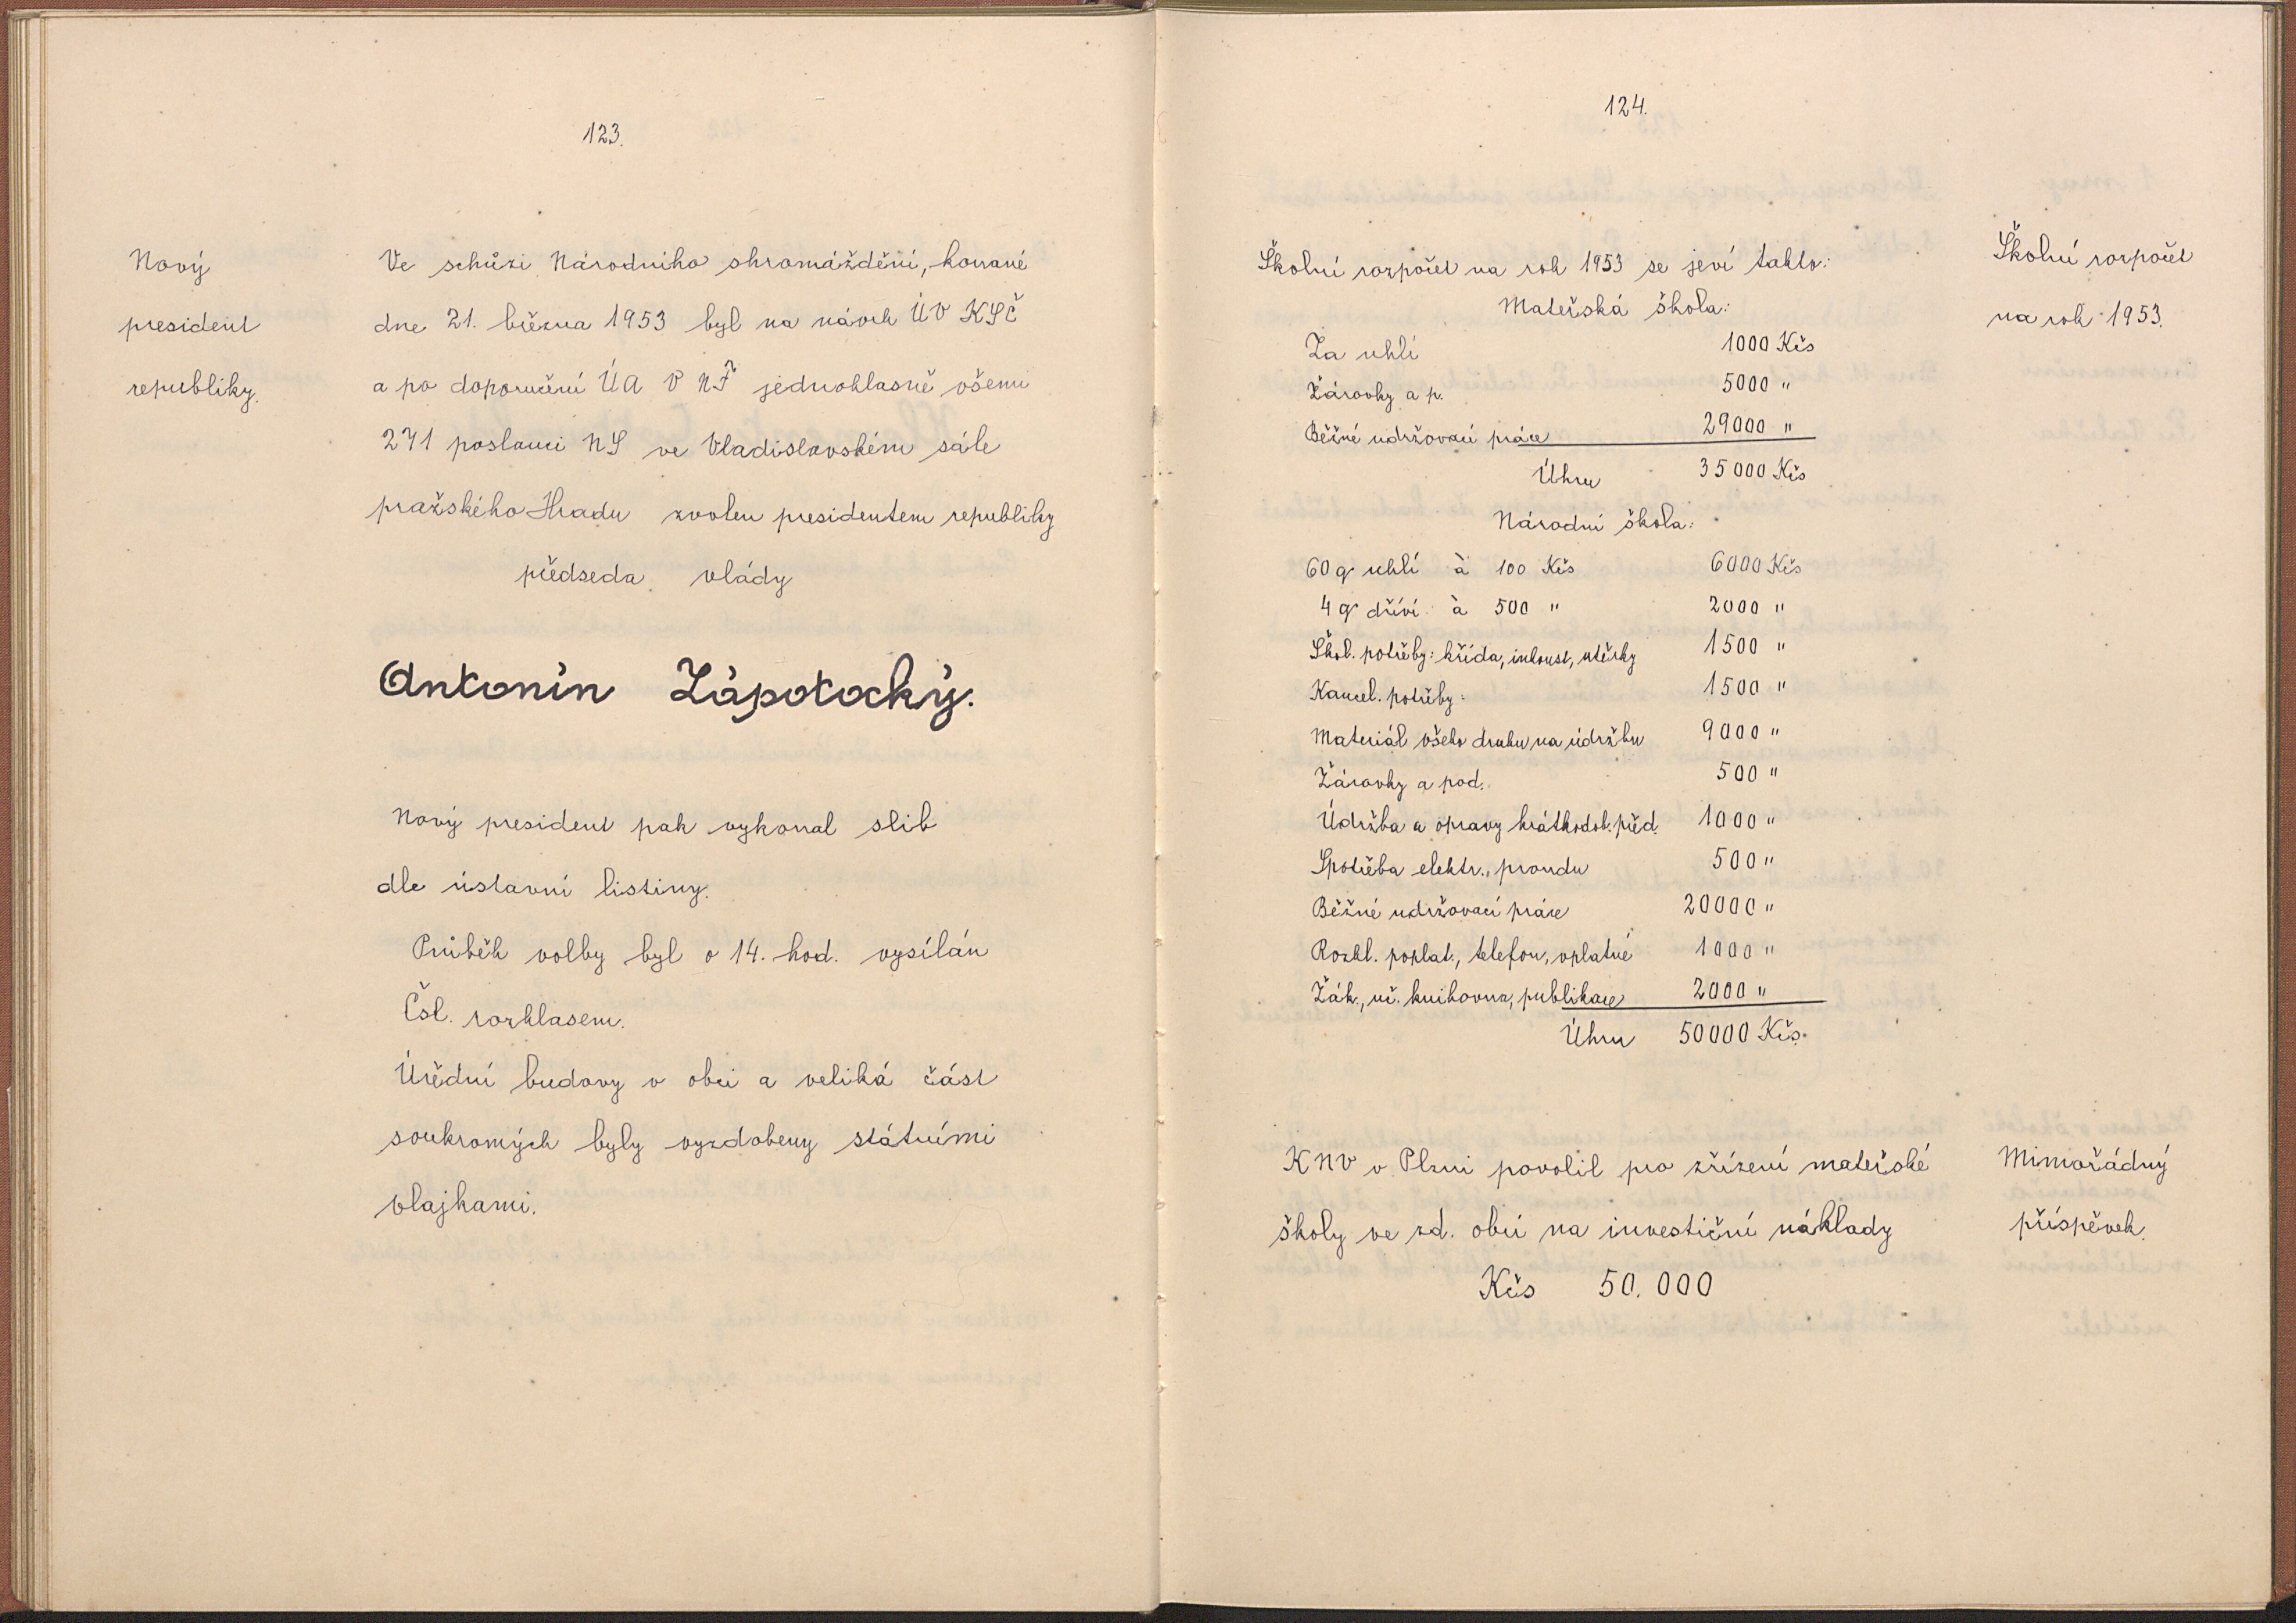 123.
Nový
president
republiky.
Ve schůzi Národního shromáždění, konané
dne 21. března 1953 byl na návrh ÚV KSČ
a po doporučení ÚA V NF jednohlasně všemi
271 poslanci NS ve Vladislavském sále
pražského Hradu zvolen presidentem republiky
předseda vlády
Antonín Zápotocký.
Nový president pak vykonal slib
dle ústavní listiny.
Průběh volby byl o 14. hod. vysílán
Čsl. rozhlasem.
Úřední budovy v obci a veliká část
soukromých byly vyzdobeny státními
vlajkami.
124.
Školní rozpočet
na rok 1953.
Školní rozpočet na rok 1953 se jeví takto:
Mateřská škola:
Za uhlí 1000 Kčs
Žárovky a p. 5000 "
Běžné udržovací práce 29000 "
Úhrn 35000 Kčs
Národní škola:
60 q uhlí à 100 Kčs 6000 Kčs
4 q dříví à 500 " 2000 "
Škol. potřeby: křída, inkoust, utěrky 1500 "
Kancel. potřeby: 1500 "
Materiál všeho druhu na údržbu 9000 "
Žárovky a pod. 500 "
Údržba a opravy krátkodob. před. 1000 "
Spotřeba elektr. proudu 500 "
Běžné udržovací práce 20000 "
Rozhl. poplat., telefon, oplatné 1000 "
Žák., uč. knihovna, publikace 2000 "
Úhrn 50000 Kčs.
Mimořádný
příspěvek.
KNV v Plzni povolil pro zřízení mateřské
školy ve zd. obci na investiční náklady
Kčs 50.000